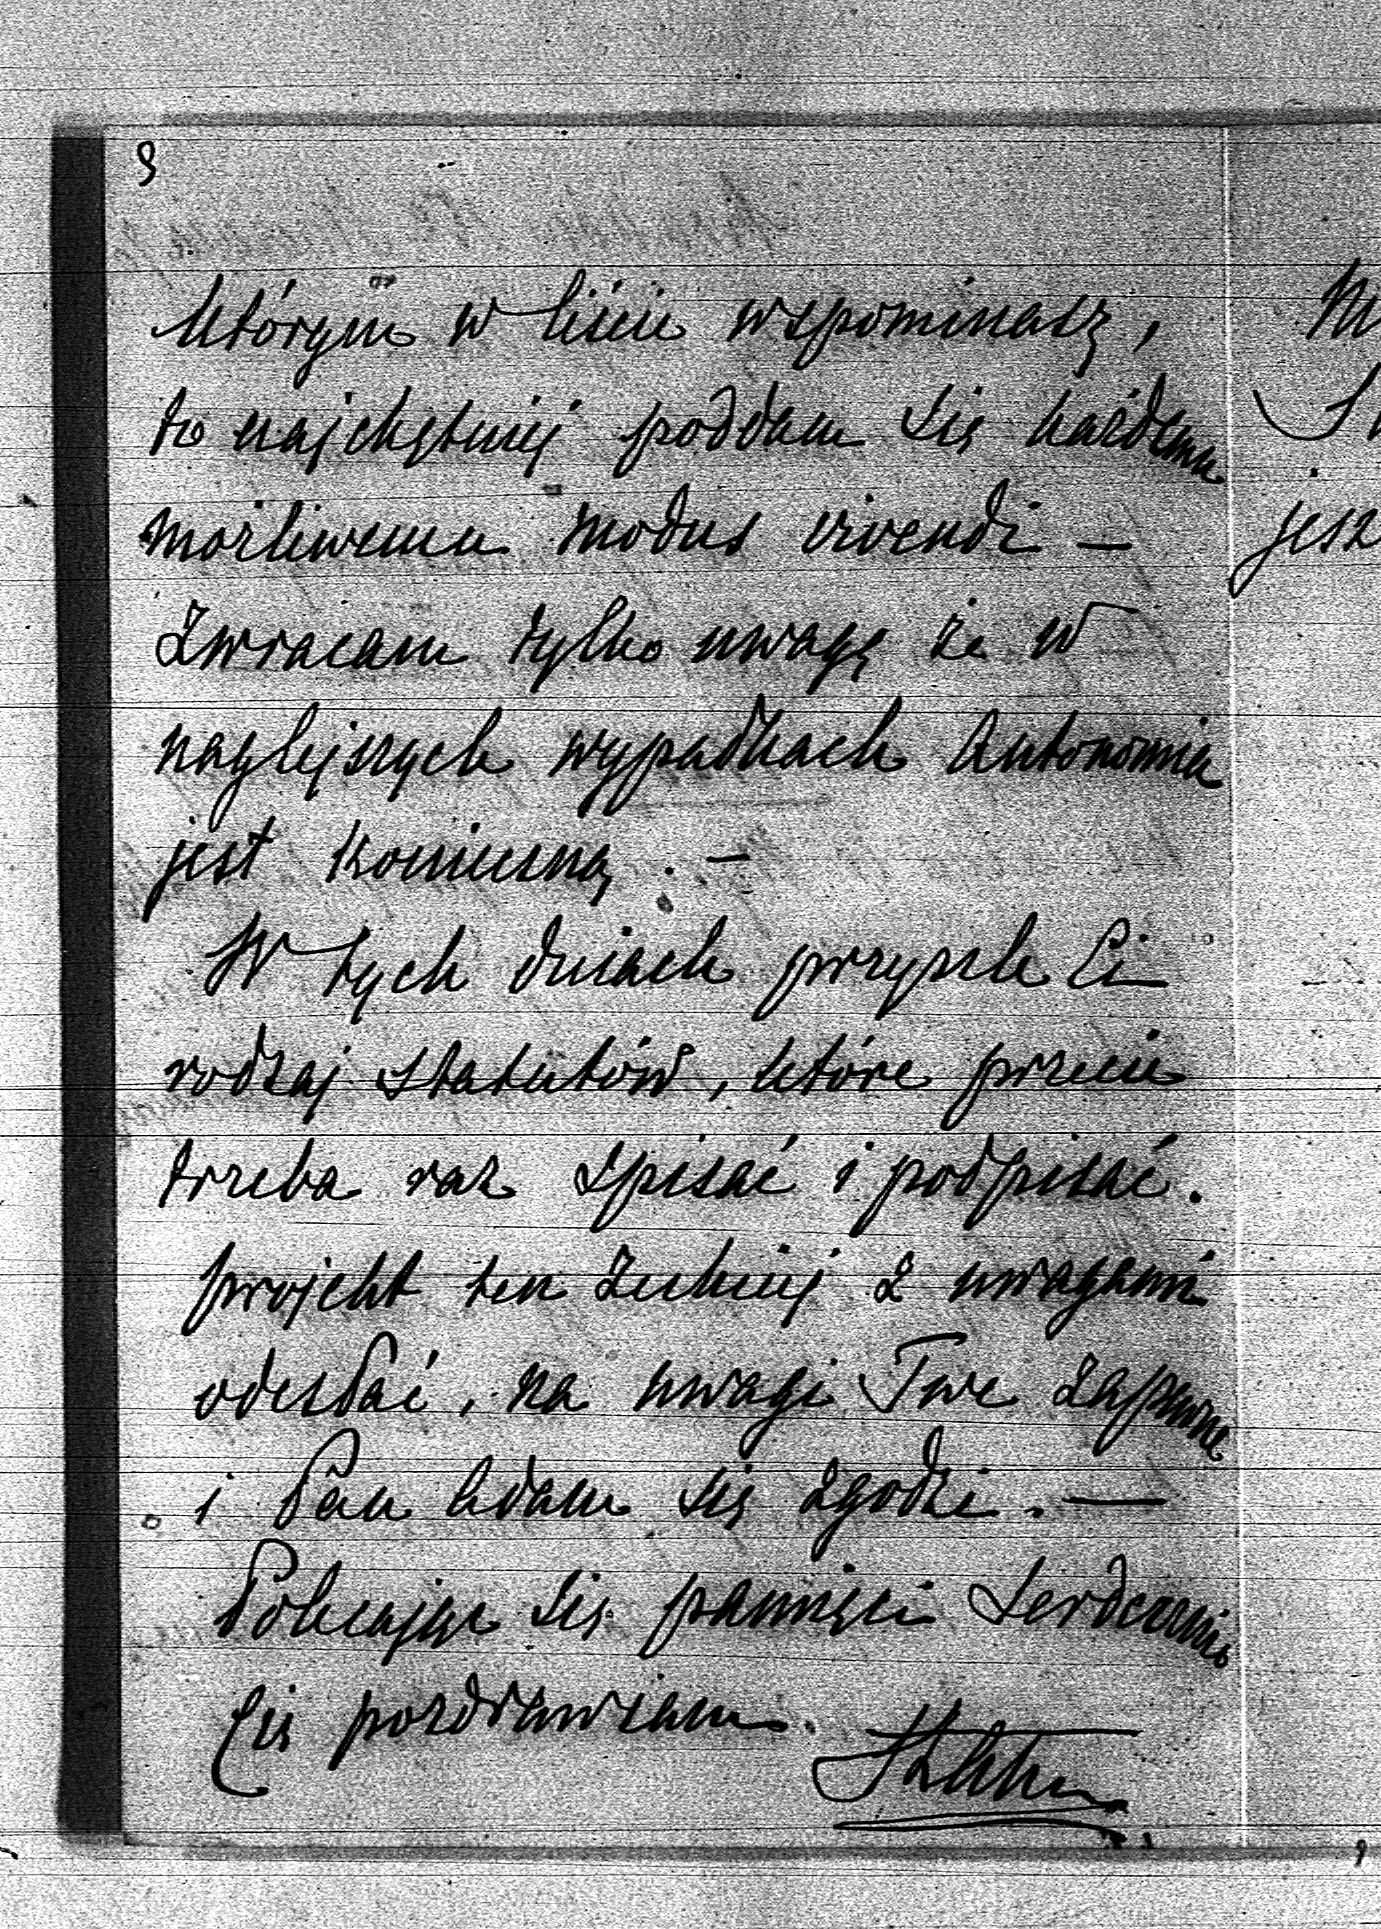 którym w liście wspominasz,
to najchętniej poddam się każdemu
możliwemu modus vivendi —
Zwracam tylko uwagę że w
naglejszych wypadkach Autonomia
jest konieczną. —
W tych dniach przyszlę Ci
rodzaj statutów, które przecie
trzeba raz spisać i podpisać.
projekt ten zechciej z uwagami
odesłać, na uwagi Twe zapewne
i Pan Adam się zgodzi. —
Polecając się pamięci serdecznie
Cię pozdrawiam.